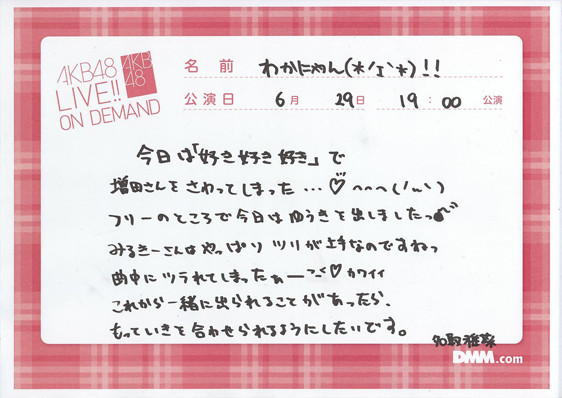 AKB48
LIVE!!
ON DEMAND
AKB
48
名前 わかにゃん(*/ェ\*)!!
公演日 6月 29日 19:00 公演
今日は「好き好き好き」で
増田さんをさわってしまった…♡へへへ(/ω\)
フリーのところで今日はゆうきを出しましたっ
みるきーさんはやっぱり ツリが上手なのですねっ
曲中にツラれてしまったぁーっ<♡カワイイ
これから一緒に出られることがあったら、
もっていきを合わせられるようにしたいです。
名取稚菜
DMM.com